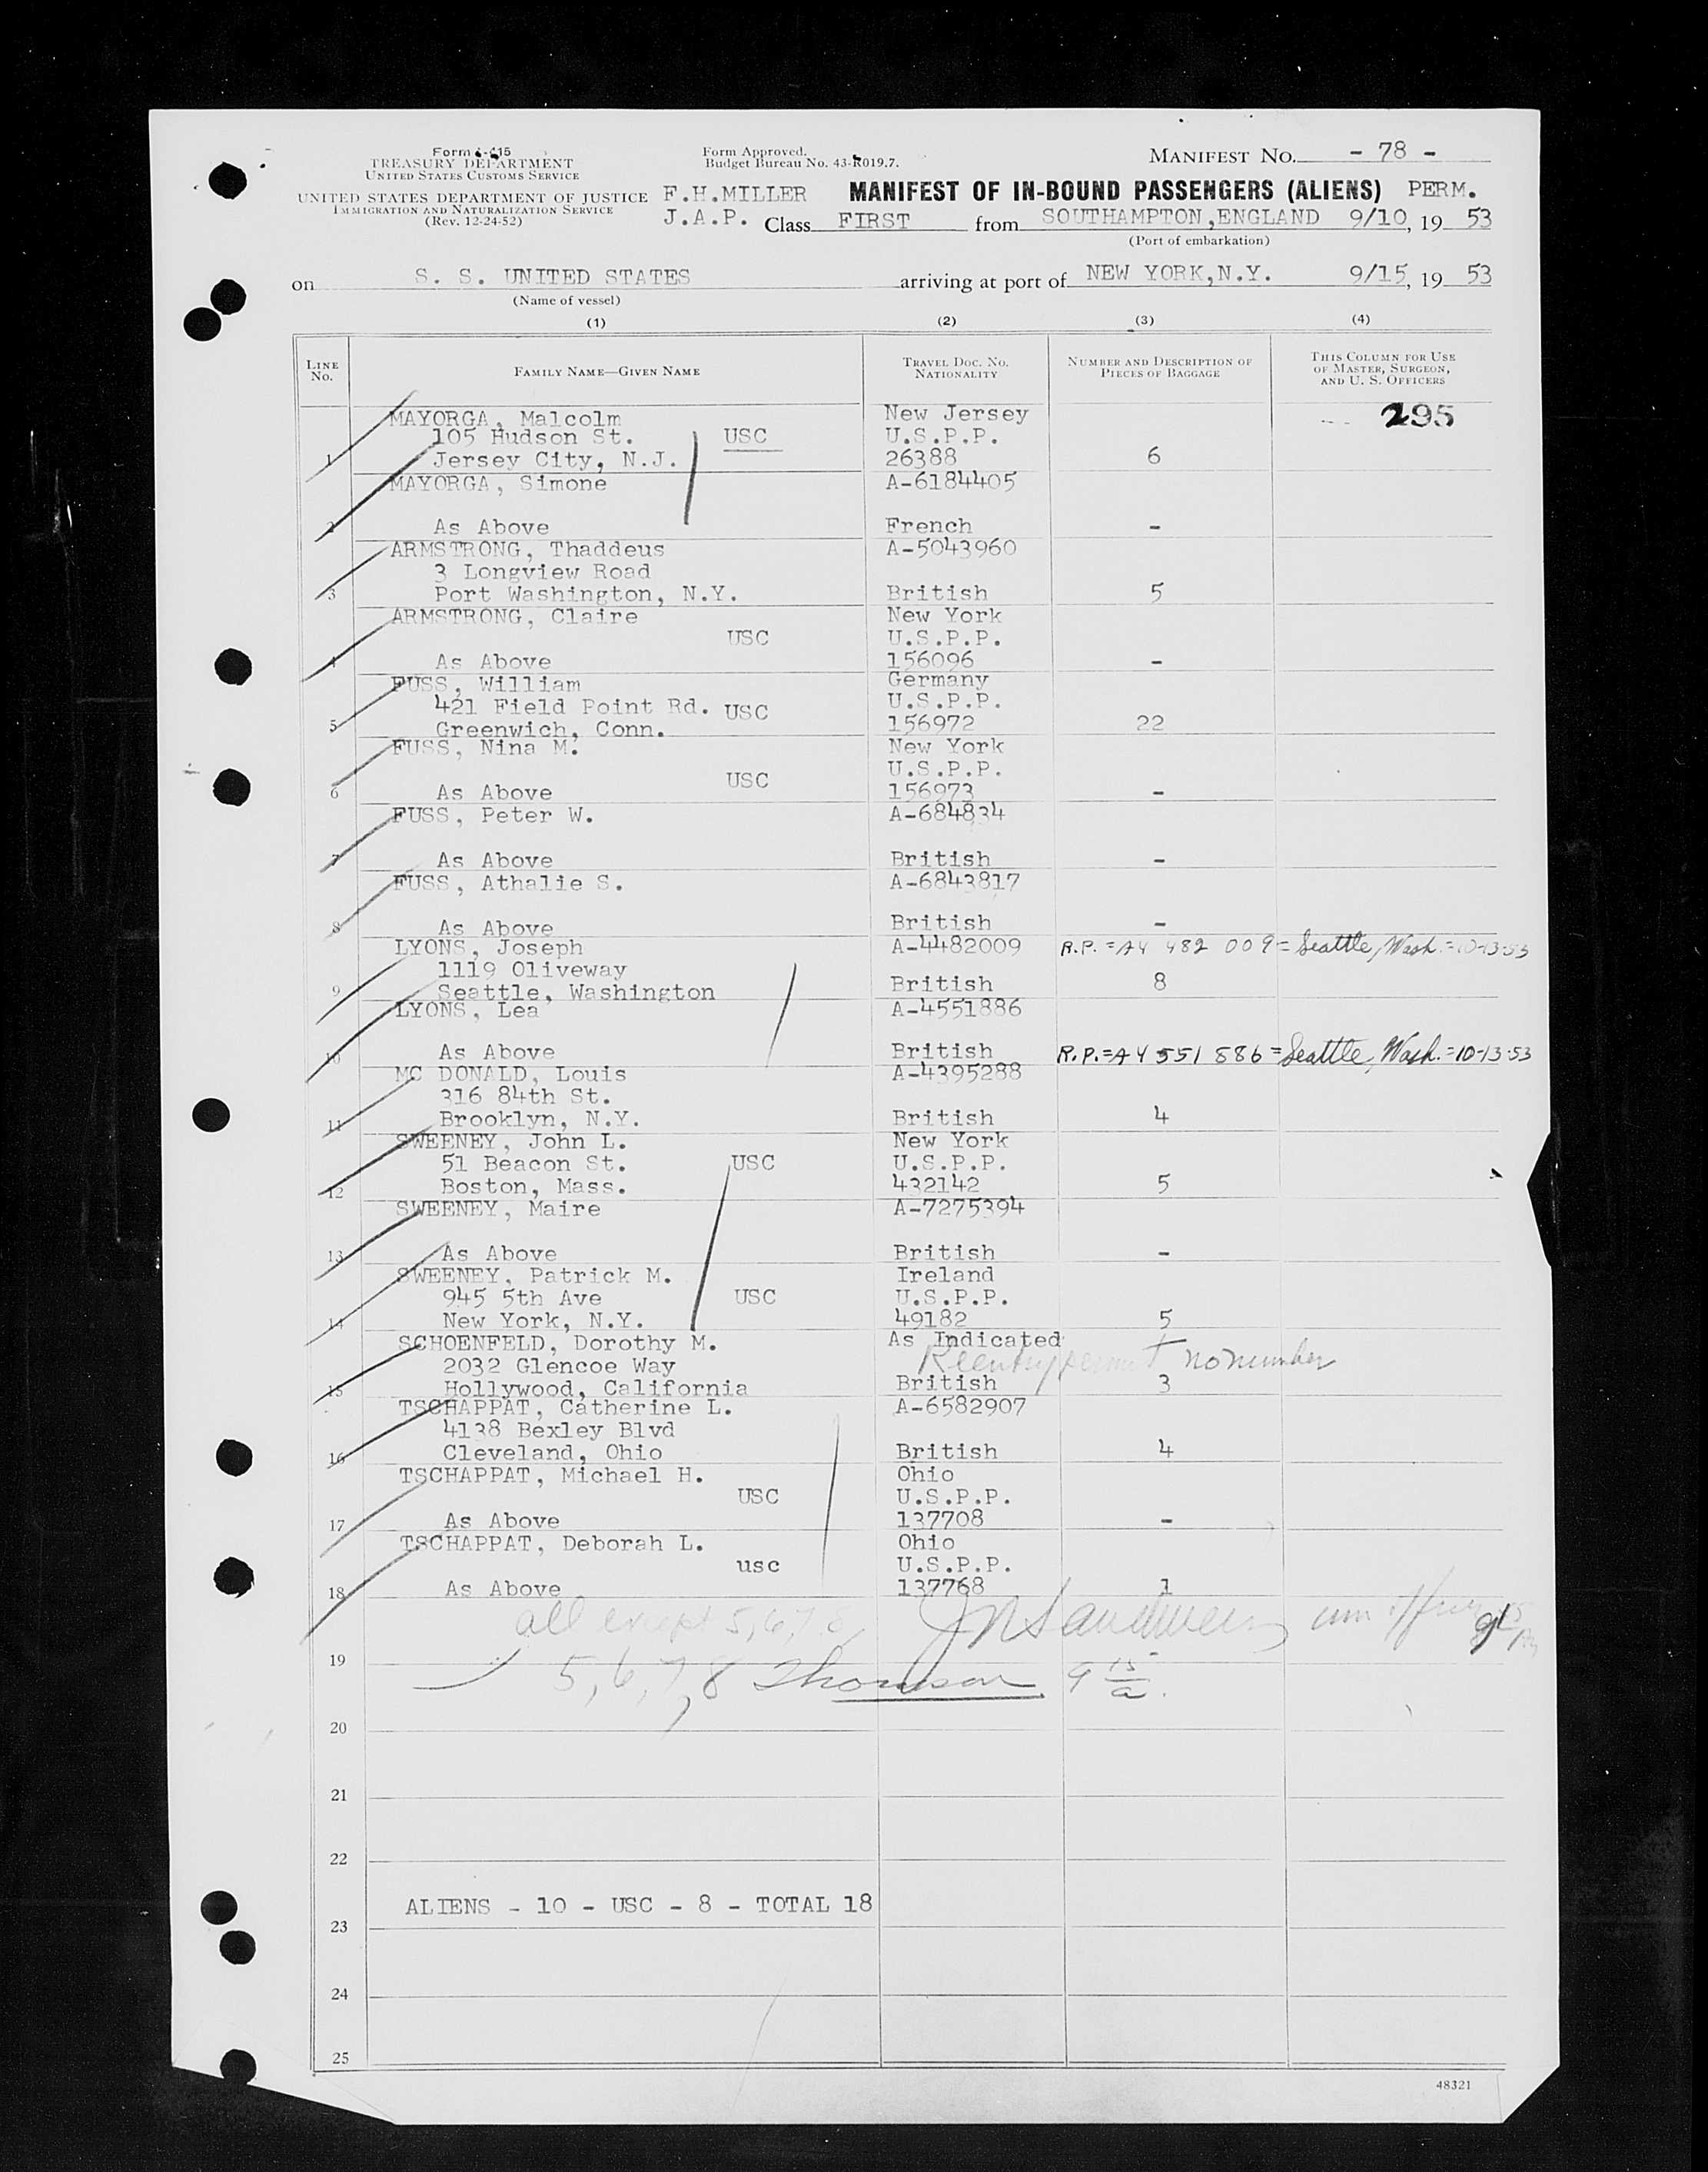 Form I-415
TREASURY DEPARTMENT
UNITED STATES CUSTOMS SERVICE
UNITED STATES DEPARTMENT OF JUSTICE
IMMIGRATION AND NATURALIZATION SERVICE
(Rev. 12-24-52)
Form Approved.
Budget Bureau No. 43-R019.7.
MANIFEST NO. - 78 -
F.H.MILLER MANIFEST OF IN-BOUND PASSENGERS (ALIENS) PERM.
J.A.P. Class FIRST from SOUTHAMPTON,ENGLAND 9/10, 19 53
(Port of embarkation)
on S. S. UNITED STATES arriving at port of NEW YORK,N.Y. 9/15, 19 53
(Name of vessel)
(1) (2) (3) (4)
LINE No. FAMILY NAME—GIVEN NAME TRAVEL DOC. NO. NATIONALITY NUMBER AND DESCRIPTION OF PIECES OF BAGGAGE THIS COLUMN FOR USE OF MASTER, SURGEON, AND U. S. OFFICERS
MAYORGA, Malcolm New Jersey 295
105 Hudson St. USC U.S.P.P.
1 Jersey City, N.J. 26388 6
MAYORGA, Simone A-6184405
2 As Above French -
ARMSTRONG, Thaddeus A-5043960
3 Longview Road
3 Port Washington, N.Y. British 5
ARMSTRONG, Claire New York
USC U.S.P.P.
4 As Above 156096 -
FUSS, William Germany
421 Field Point Rd. USC U.S.P.P.
5 Greenwich, Conn. 156972 22
FUSS, Nina M. New York
USC U.S.P.P.
6 As Above 156973 -
FUSS, Peter W. A-684834
7 As Above British -
FUSS, Athalie S. A-6843817
8 As Above British -
LYONS, Joseph A-4482009 R.P.=A4 482 009= Seattle, Wash.=10-13-53
1119 Oliveway
9 Seattle, Washington British 8
LYONS, Lea A-4551886
10 As Above British R.P.=A4 551 886= Seattle, Wash.=10-13-53
MC DONALD, Louis A-4395288
316 84th St.
11 Brooklyn, N.Y. British 4
SWEENEY, John L. New York
51 Beacon St. USC U.S.P.P.
12 Boston, Mass. 432142 5
SWEENEY, Maire A-7275394
13 As Above British -
SWEENEY, Patrick M. Ireland
945 5th Ave USC U.S.P.P.
14 New York, N.Y. 49182 5
SCHOENFELD, Dorothy M. As Indicated
2032 Glencoe Way Reentry permit no number
15 Hollywood, California British 3
TSCHAPPAT, Catherine L. A-6582907
4138 Bexley Blvd
16 Cleveland, Ohio British 4
TSCHAPPAT, Michael H. Ohio
USC U.S.P.P.
17 As Above 137708 -
TSCHAPPAT, Deborah L. Ohio
usc U.S.P.P.
18 As Above 137768 1
all except 5,6,7,8
19 5,6,7,8 Thomson 9 15/a.
20
21
22
ALIENS - 10 - USC - 8 - TOTAL 18
23
24
25
48321